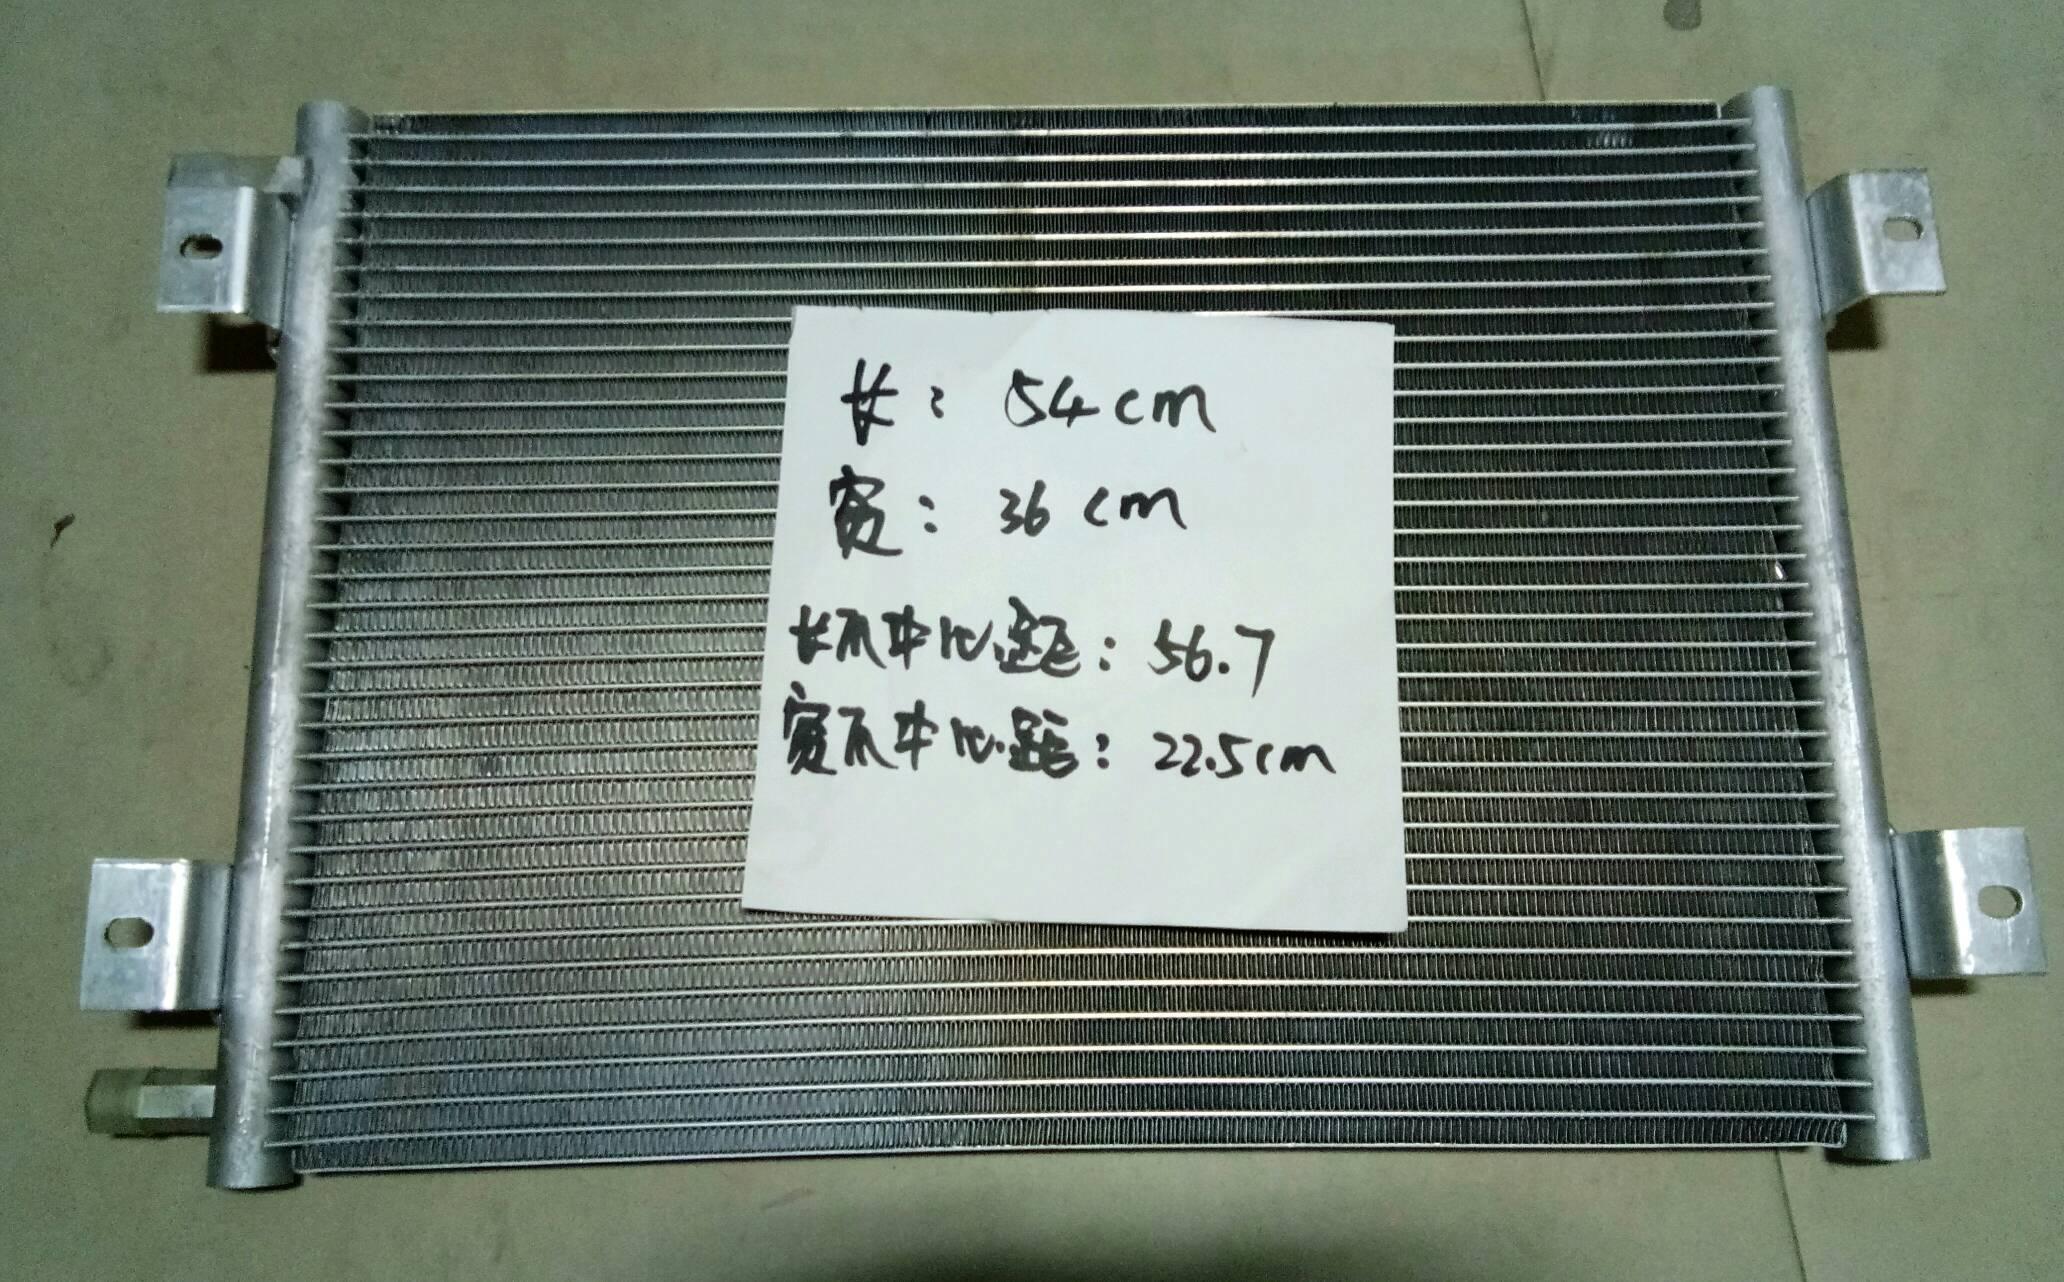 长：54cm
宽：36cm
长爪中心距：56.7
宽爪中心距：22.5cm